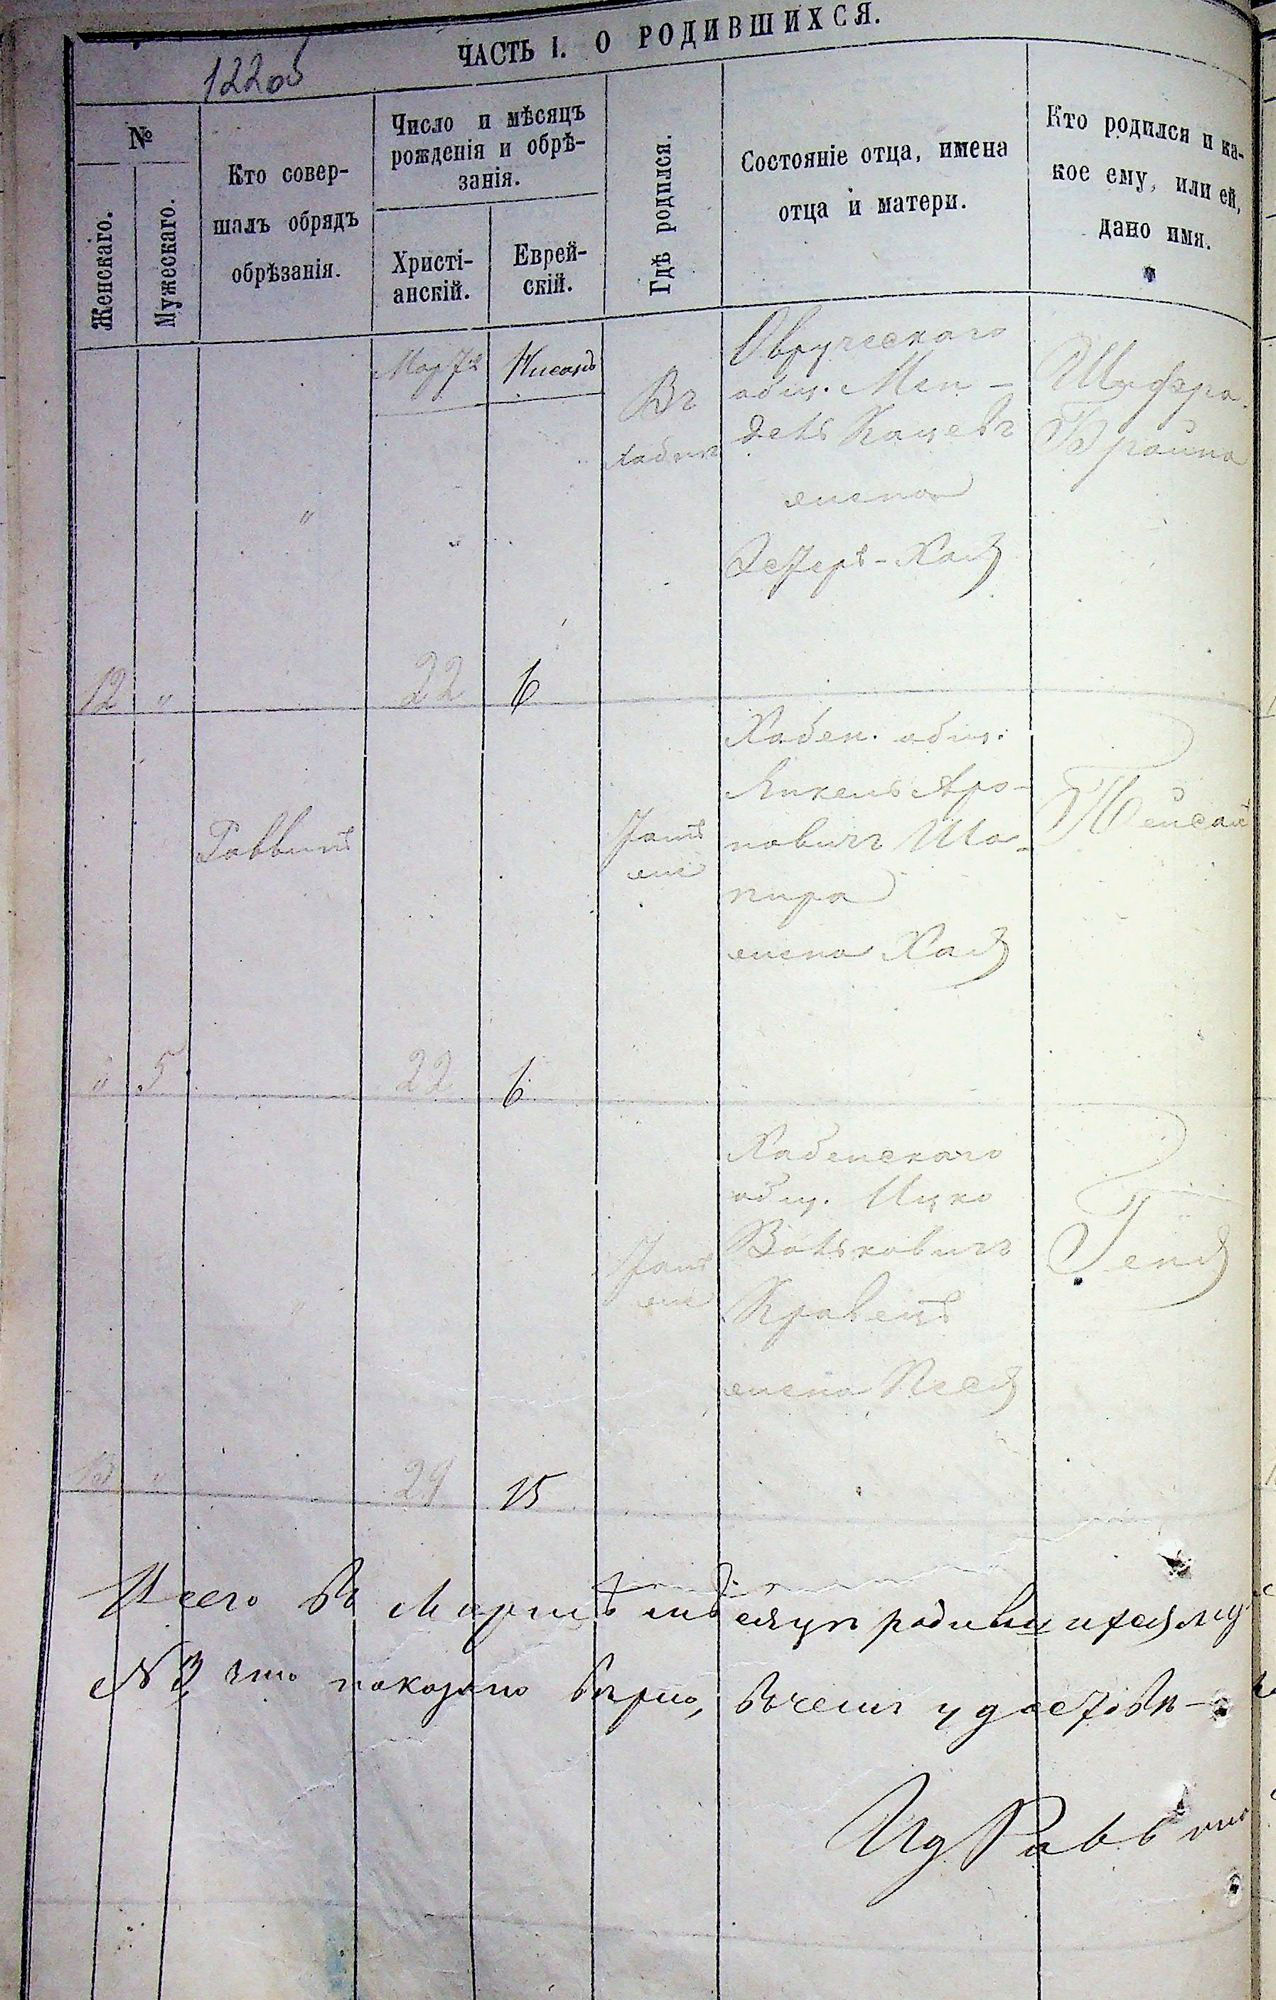 ЧАСТЬ I. О РОДИВШИХСЯ.
№
Женскаго.
Мужескаго.
Кто совер-
шалъ обрядъ
обрѣзанія.
Число и мѣсяцъ
рожденія и обрѣ-
занія.
Христі-
анскій.
Еврей-
скій.
Гдѣ родился.
Состояніе отца, имена
отца и матери.
Кто родился и ка-
кое ему, или ей,
дано имя.
Нисанъ
Въ
Овручскаго
общ. Мен-
дель Кацевъ
жена
Эстеръ-Хая
Шифра
Брайна
12 " 22 6
Раввинъ
Тамъ
же
Хабен. общ.
Янкель Аро-
новичъ Ша-
пиро
жена Хая
Пейсах
" 5 22 6
Тамъ
же
Хабенскаго
общ. Ицко
Волькович
Кравецъ
жена Песя
Геня
13 " 15
Всего въ Мартѣ мѣсяцѣ родившихся
№ 3 что показано вѣрно, въ чемъ удостовѣ-